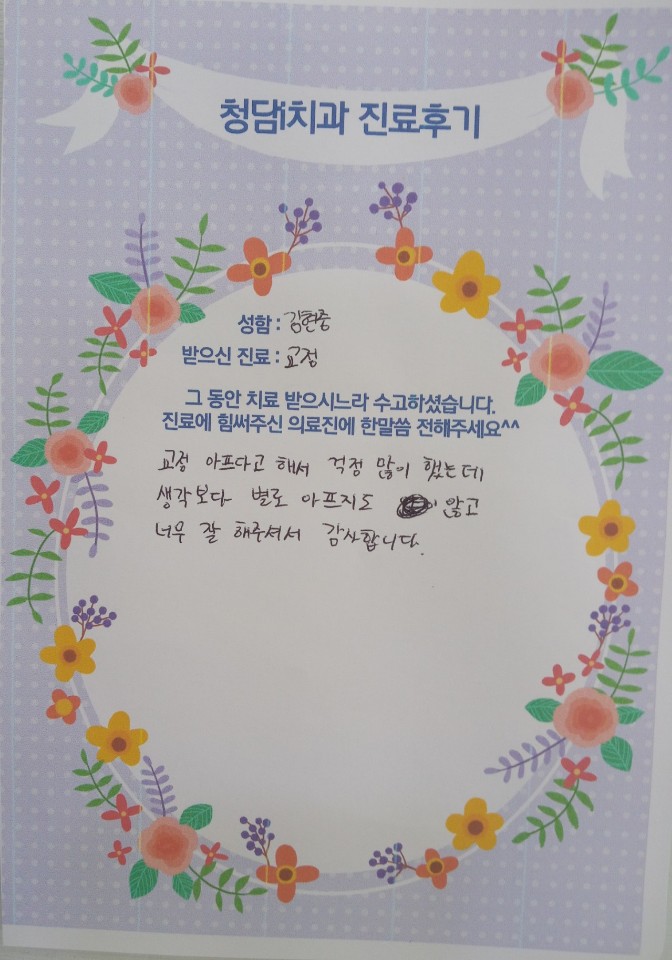 청담치과 진료후기
성함 : 김현중
받으신 진료 : 교정
그 동안 치료 받으시느라 수고하셨습니다.
진료에 힘써주신 의료진에 한말씀 전해주세요^^
교정 아프다고 해서 걱정 많이 했는데
생각보다 별로 아프지도 않고
너무 잘 해주셔서 감사합니다.